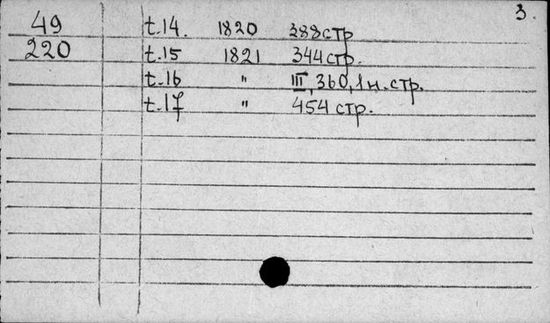 3.
49 t.14. 1820 388 стр
220 t.15 1821 344 стр.
t.16 " III, 360, 1 н. стр.
t.17 " 454 стр.